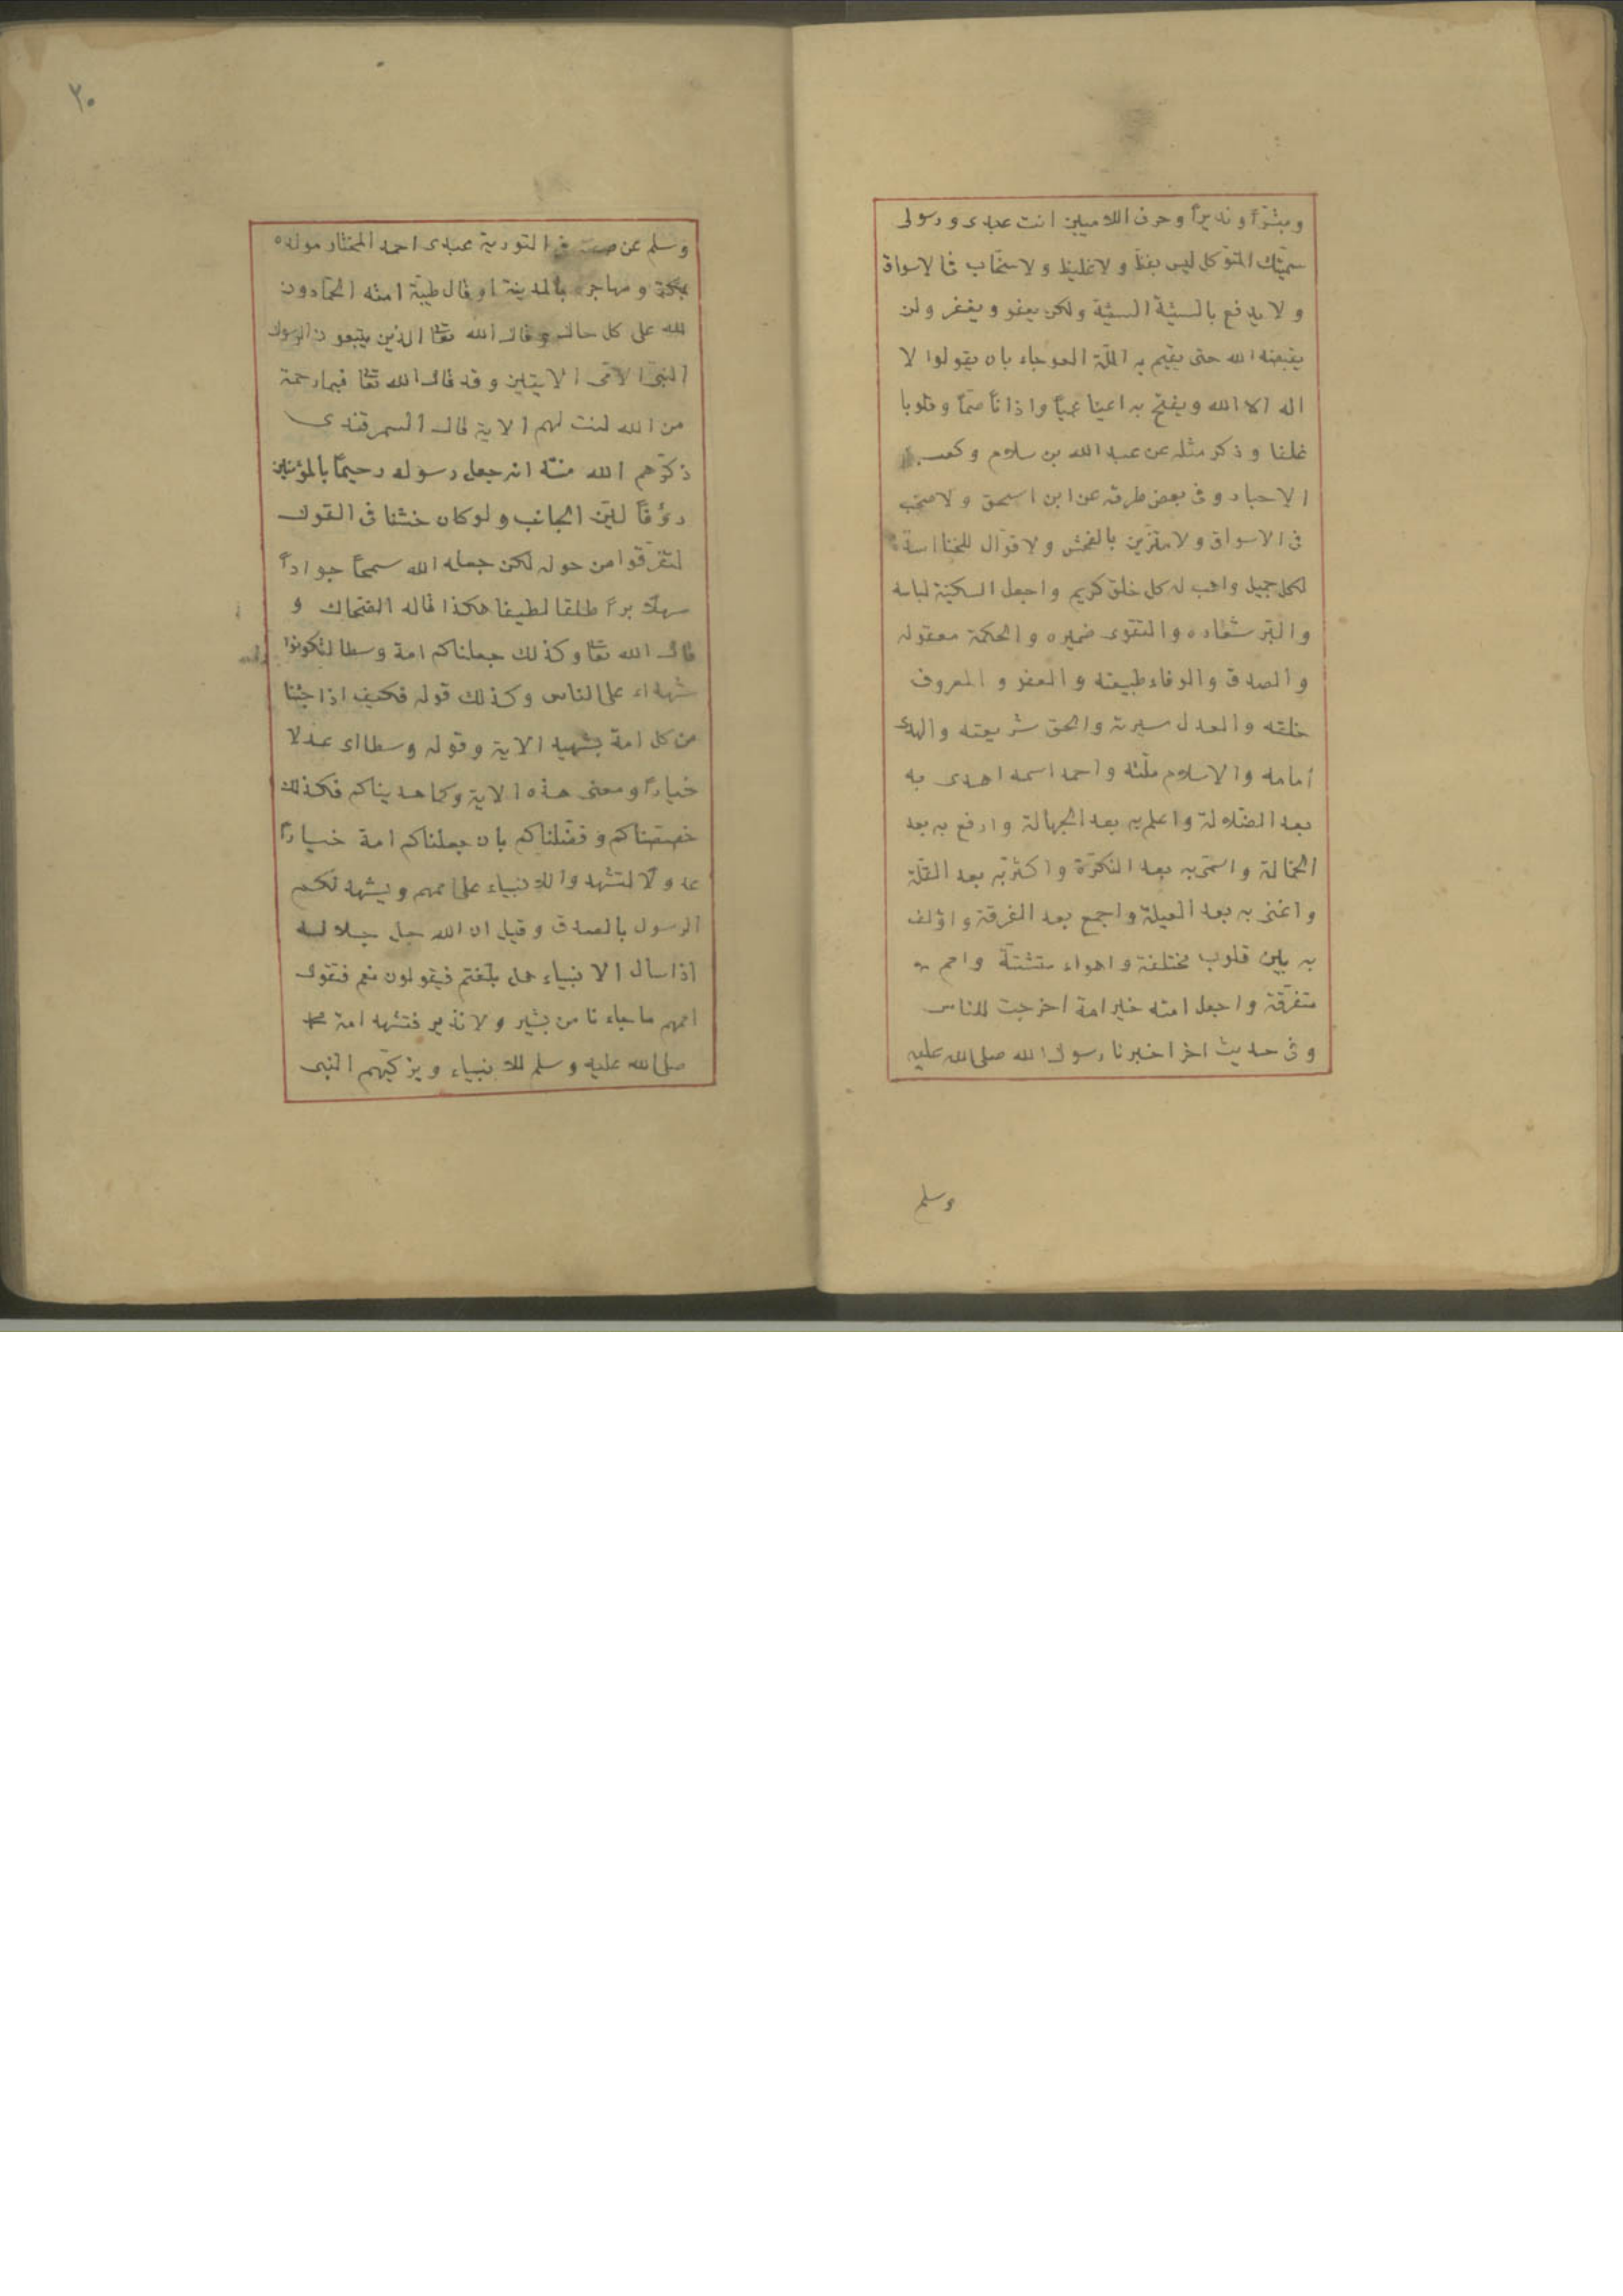 ومبشّراً ونذيراً وحرزا للاميين انت عبدى ورسولى
سمّيتك المتوكل ليس بفظّ ولا غليظ ولا سخّاب فى الاسواق
ولا يدفع بالسيّئة السيّئة ولكن يعفو ويغفر ولن
يقبضه الله حتى يقيم به الملّة العوجاء بان يقولوا لا
اله الا الله ويفتح به اعينا عمياً واذاناً صمّاً وقلوبا
غلفا وذكر مثله عن عبد الله بن سلام وكعب
الاحبار وفى بعض طرقه عن ابن اسحق ولا صخب
فى الاسواق ولا متزين بالفحش ولا قوّال للخنا اسدده
لكل جميل واهب له كل خلق كريم واجعل السكينة لباسه
والبرّ شعاره والتقوى ضميره والحكمة معقوله
والصدق والوفاء طبيعته والعفو والمعروف
خلقه والعدل سيرته والحق شريعته والهدى
امامه والاسلام ملّته واحمد اسمه اهدى به
بعد الضلالة واعلم به بعد الجهالة وارفع به بعد
الخمالة واسمّى به بعد النكرة واكثّر به بعد القلّة
واغنى به بعد العيلة واجمع بعد الفرقة واؤلف
به بين قلوب مختلفة واهواء متشتتة وامم
متفرّقة واجعل امته خير امة اخرجت للناس
وفى حديث اخر اخبرنا رسول الله صلى الله عليه
وسلم
٢٠
وسلم عن صفته فى التورية عبدى احمد المختار مولده
بمكة ومهاجره بالمدينة او قال طيبة امته الحمّادون
لله على كل حال وقال الله تعا الذين يتبعون الرسول
النبى الامّى الايتين وقد قال الله تعا فبما رحمة
من الله لنت لهم الاية قال السمرقندى
ذكّرهم الله منّته انه جعل رسوله رحيماً بالمؤمنين
رؤفاً ليّن الجانب ولو كان خشنا فى القول
لتفرّقوا من حوله لكن جعله الله سمحاً جواداً
سهلاً براً طلقا لطيفا هكذا قاله الضحاك و
قال الله تعا وكذلك جعلناكم امة وسطا لتكونوا
شهداء على الناس وكذلك قوله فكيف اذا جئنا
من كل امة بشهيد الاية وقوله وسطا اى عدلا
خياراً ومعنى هذه الاية وكما هديناكم فكذلك
خصصناكم وفضّلناكم بان جعلناكم امة خياراً
عدولاً لتشهدوا للانبياء على اممهم ويشهد لكم
الرسول بالصدق وقيل ان الله جل جلاله
اذا سال الانبياء هل بلّغتم فيقولون نعم فتقول
اممهم ما جاءنا من بشير ولا نذير فتشهد امة محمد
صلى الله عليه وسلم للانبياء ويزكّيهم النبى